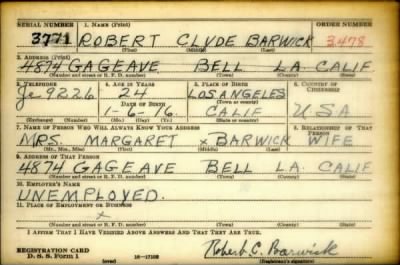 SERIAL NUMBER 1. NAME (Print) ORDER NUMBER
3771 ROBERT CLYDE BARWICK 3478
(First) (Middle) (Last)
2. ADDRESS (Print)
4874 GAGEAVE BELL LA. CALIF
(Number and street or R. F. D. number) (Town) (County) (State)
3. TELEPHONE 4. AGE IN YEARS 5. PLACE OF BIRTH 6. COUNTRY OF CITIZENSHIP
Je 9226 24 LOS ANGELES
DATE OF BIRTH (Town or county)
1-6-16 CALIF USA
(Exchange) (Number) (Mo.) (Day) (Yr.) (State or country)
7. NAME OF PERSON WHO WILL ALWAYS KNOW YOUR ADDRESS 8. RELATIONSHIP OF THAT PERSON
MRS. MARGARET x BARWICK WIFE
(Mr., Mrs., Miss) (First) (Middle) (Last)
9. ADDRESS OF THAT PERSON
4874 GAGEAVE BELL LA. CALIF
(Number and street or R. F. D. number) (Town) (County) (State)
10. EMPLOYER'S NAME
UNEMPLOYED.
11. PLACE OF EMPLOYMENT OR BUSINESS
x
(Number and street or R. F. D. number) (Town) (County) (State)
I AFFIRM THAT I HAVE VERIFIED ABOVE ANSWERS AND THAT THEY ARE TRUE.
REGISTRATION CARD Robert C. Barwick
D. S. S. Form 1 (over) 16-17105 (Registrant's signature)